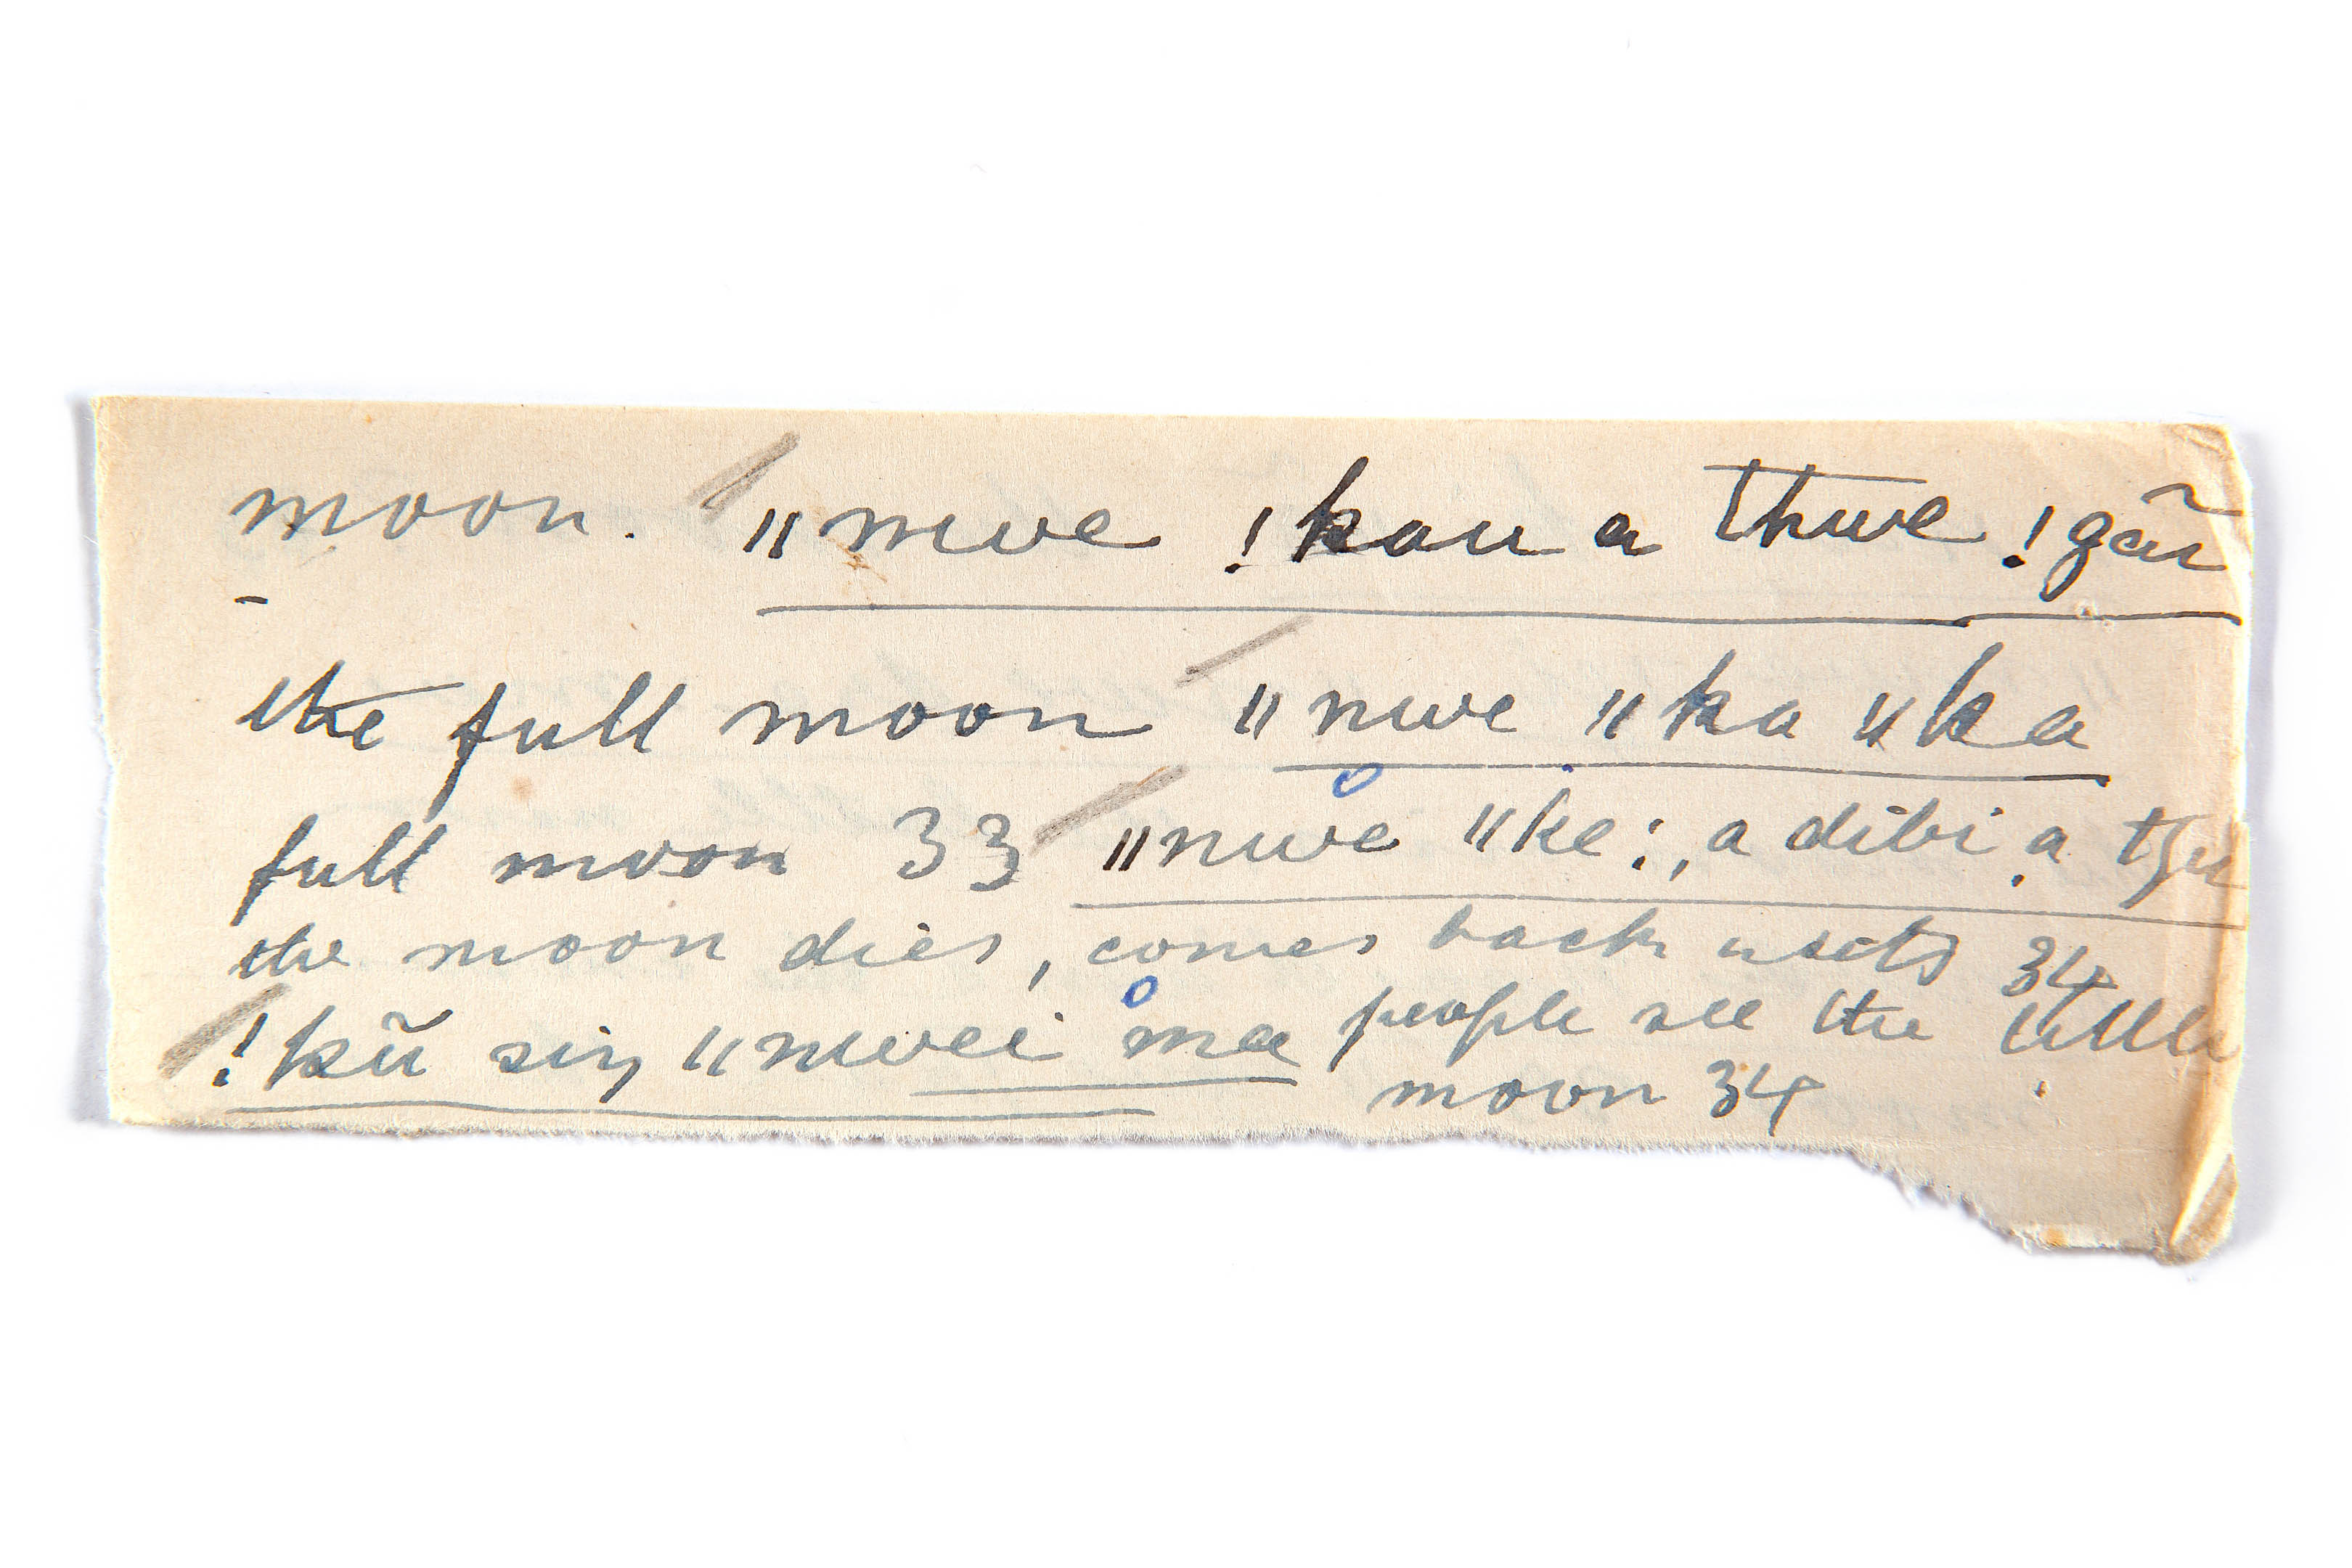 moon. ǁnwe !kau a thwe !gãı
the full moon ǁnwe ǁka ǁka
full moon 33 ǁnwe ǁke:, a dibi a
the moon dies, comes back & sets 34
!kũ siŋ ǁnwei ma people see the little
moon 34